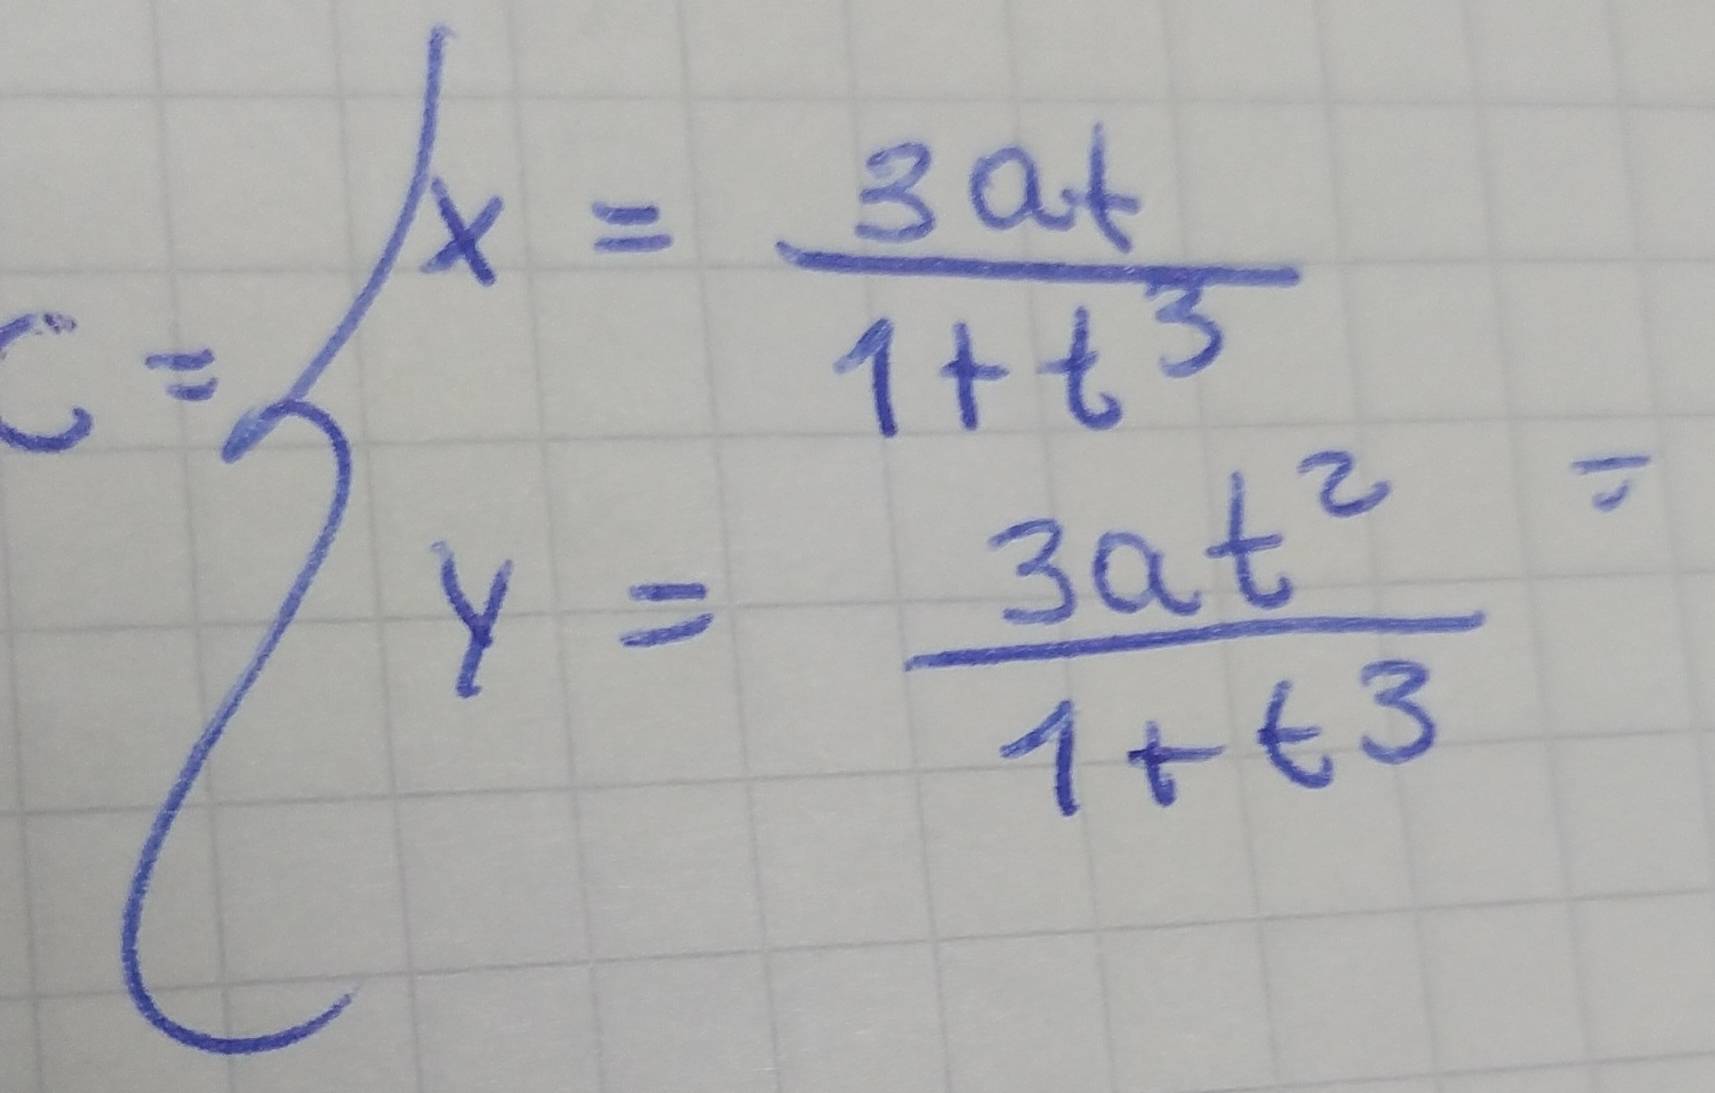 C = { x = 3at / 1+t³
y = 3at² / 1+t³ =